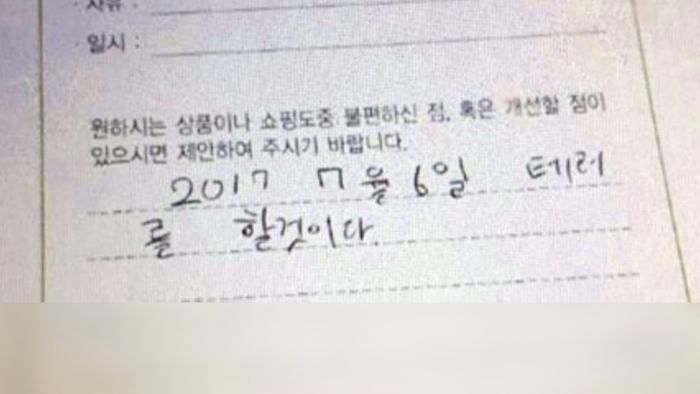 · 사유 :
· 일시 :
원하시는 상품이나 쇼핑도중 불편하신 점, 혹은 개선할 점이
있으시면 제안하여 주시기 바랍니다.
2017 7월 6일 테러
를 할것이다.